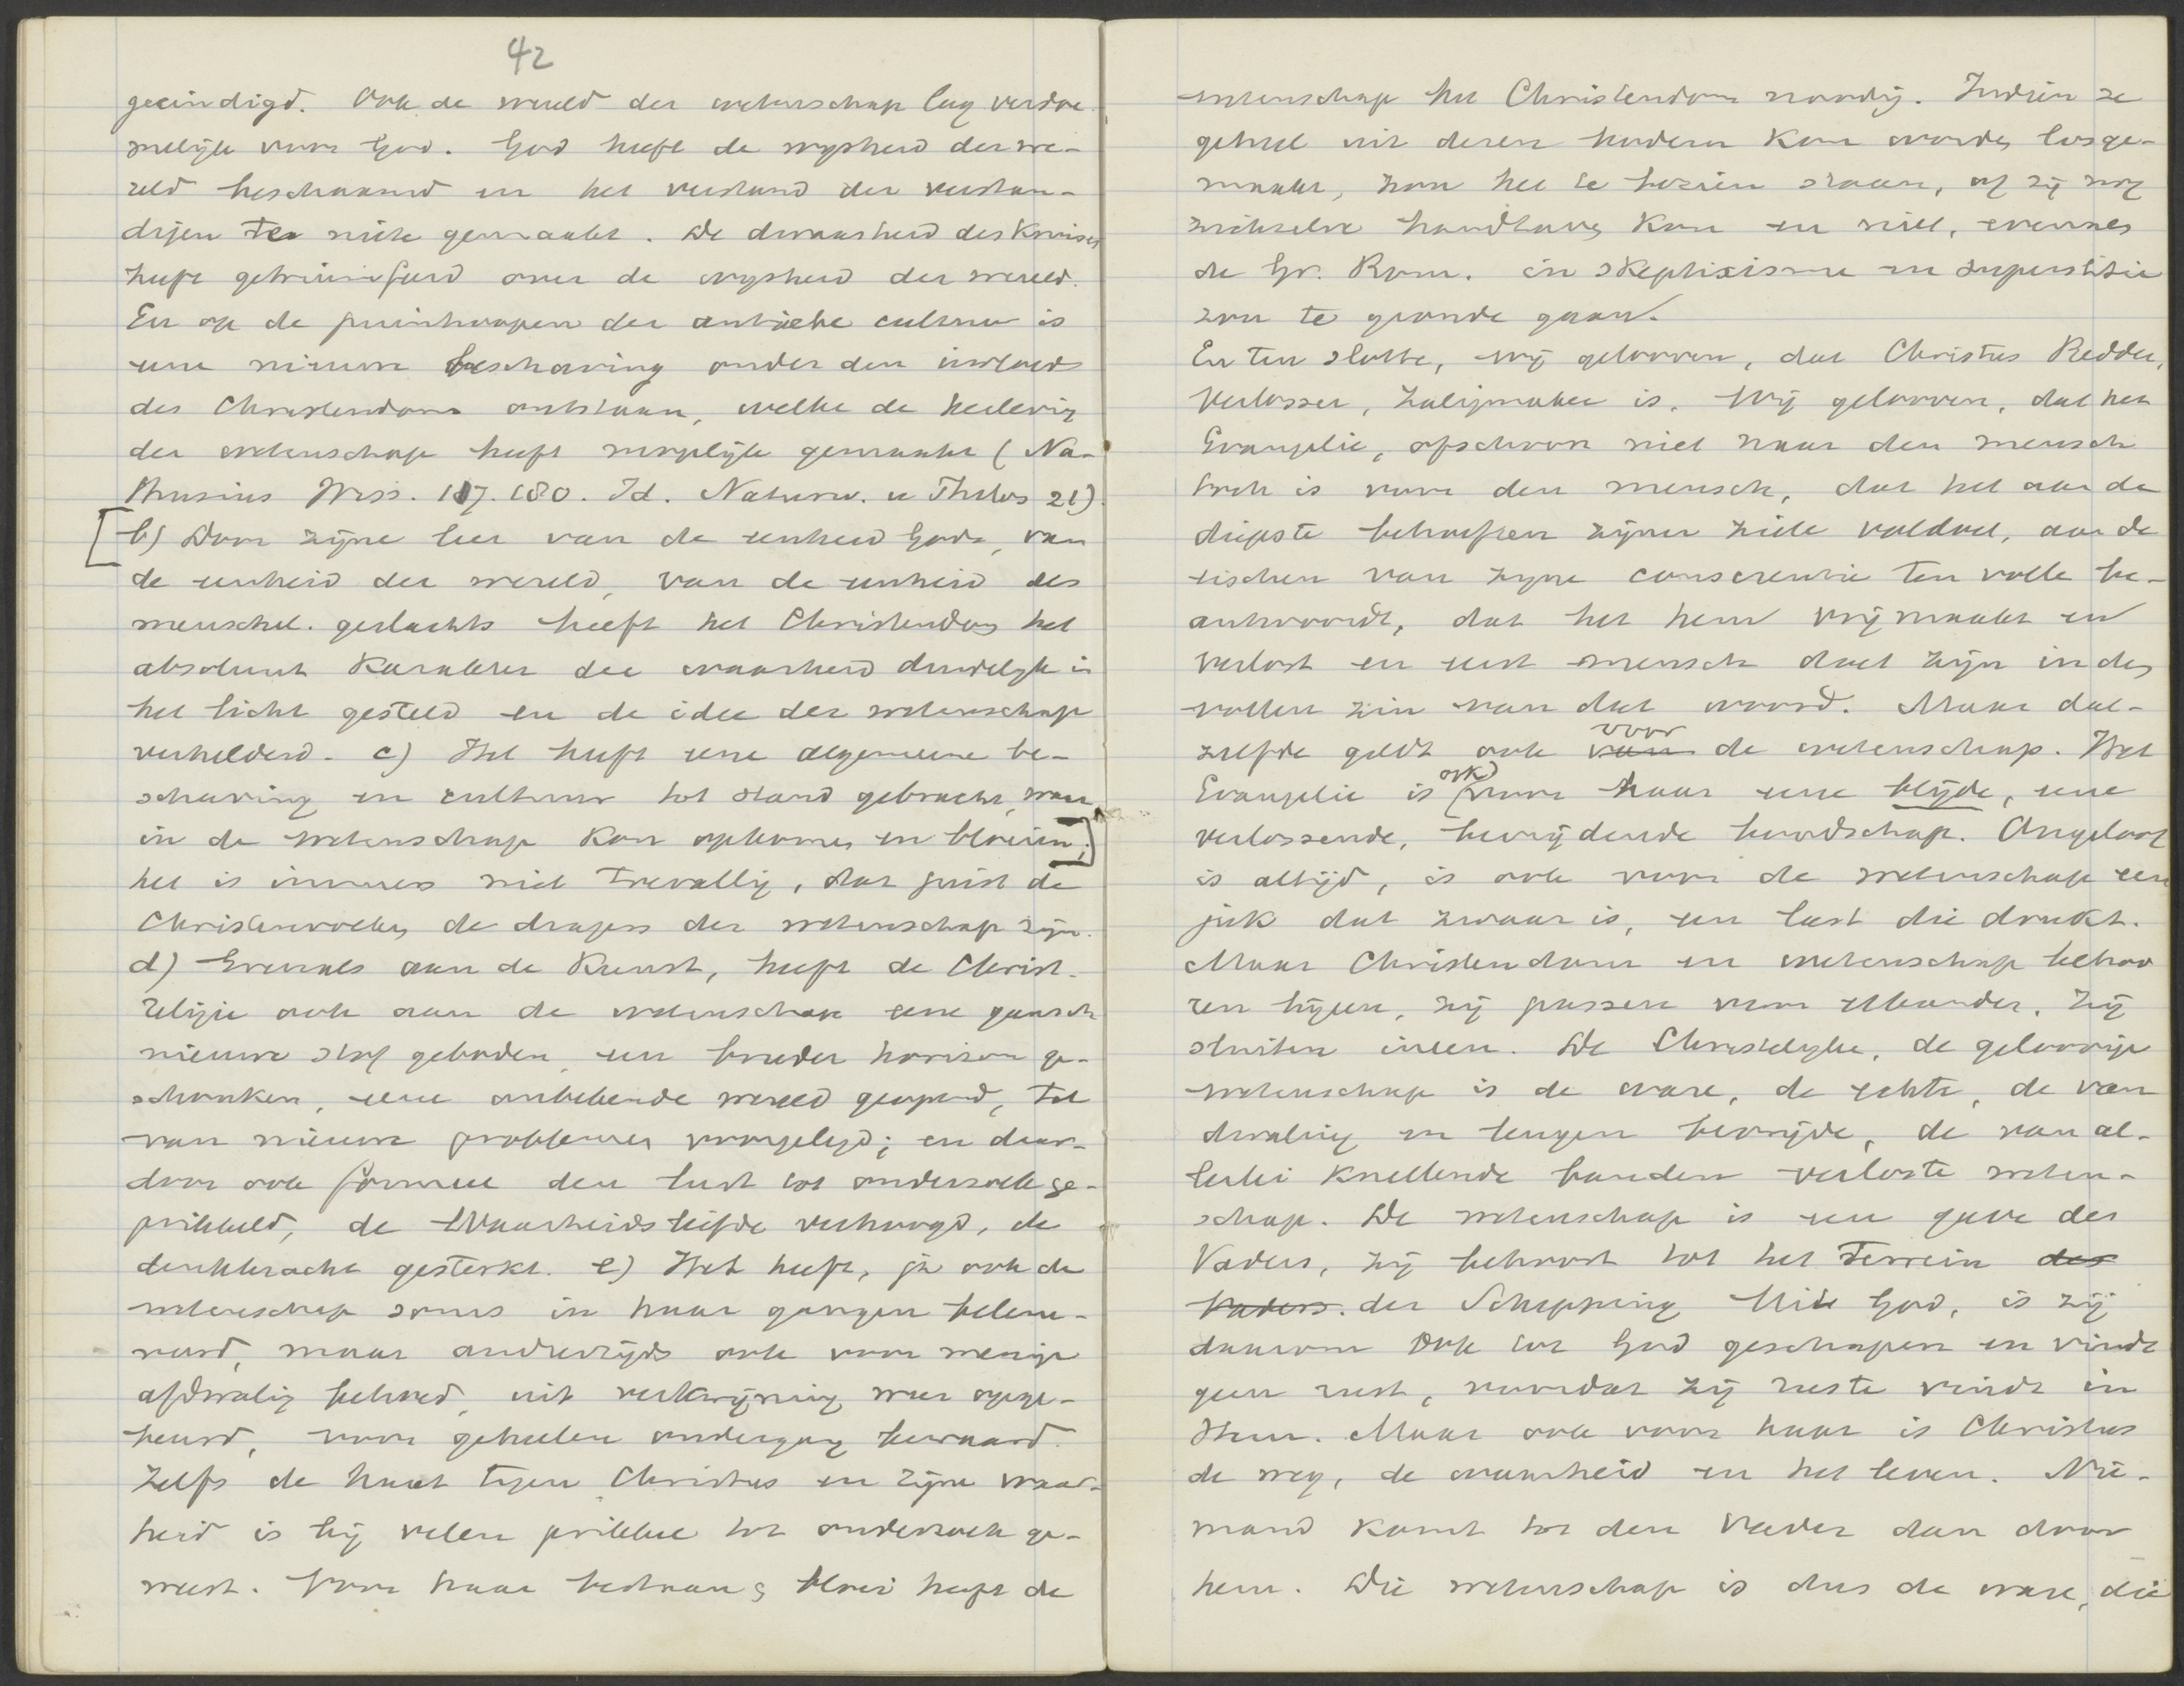 42
geëindigd. Ook de wereld der wetenschap lag verdoe-
melijk voor God. God heeft de wysheid der we-
reld beschaamd en het verstand der verstan-
digen te niete gemaakt. De dwaasheid des Kruises
heeft getriumfeerd over de wysheid der wereld.
En op de puinhoopen der antieke cultuur is
eene nieuwe beschaving onder den invloed
des Christendoms ontstaan, welke de herleving
der wetenschap heeft mogelijk gemaakt (Na-
thusius Wiss. 187. 180. Id. Naturw. u Philos 21).
[b) Door zijne leer van de eenheid Gods, van
de eenheid der wereld, van de eenheid des
menschel. geslachts heeft het Christendom het
absoluut karakter der waarheid duidelyk in
het licht gesteld en de idee der wetenschap
verhelderd. c) Het heeft eene algemeene be-
schaving en cultuur tot stand gebracht, waar
in de wetenschap kon opkomen en bloeien;]
het is immers niet toevallig, dat juist de
Christenvolken de dragers der wetenschap zijn.
d) Evenals aan de Kunst, heeft de Christ.
religie ook aan de wetenschap eene gansch
nieuwe stof geboden, een breeder horizon ge-
schonken, eene onbekende wereld geopend, tal
van nieuwe problemen voorgelegd; en daar-
door ook formeel den lust tot onderzoek ge-
prikkeld, de Waarheidsliefde verhoogd, de
denkkracht gesterkt. e) Het heeft, ja ook de
wetenschap soms in haar gangen belem-
merd, maar anderzijds ook voor menige
afdwaling behoed, uit verkwijning weer opge-
beurd, voor geheelen ondergang bewaard.
Zelfs de haat tegen Christus en zijne waar-
heid is bij velen prikkel tot onderzoek ge-
weest. Voor haar bestaan & bloei heeft de
wetenschap het Christendom noodig. Indien ze
geheel uit deszelfs bodem kon worden losge-
maakt, zou het te bezien staan, of zij nog
zichzelve handhaven kon en niet, evenals
de Gr. Rom. in skeptisisme en superstitie
zou te gronde gaan.
En ten slotte, wij gelooven, dat Christus Redder,
Verlosser, Zaligmaker is. Wij gelooven, dat het
Evangelie, ofschoon niet naar den mensch
toch is voor den mensch, dat het aan de
diepste behoeften zijner ziele voldoet, aan de
eischen van zijne conscientie ten volle be-
antwoordt, dat het hem vrij maakt en
verlost en eerst mensch doet zijn in den
vollen zin van dat woord. Maar dat-
zelfde geldt ook ~~van~~ voor de wetenschap. Het
Evangelie is ook voor haar eene blijde, eene
verlossende, bevrijdende boodschap. Ongeloof
is altijd, is ook voor de wetenschap een
juk dat zwaar is, een last die drukt.
Maar Christendom en wetenschap behoo
ren bijeen, zij passen voor elkander, zij
sluiten ineen. De Christelyke, de geloovige
wetenschap is de ware, de echte, de van
dwaling en leugen bevrijde, de van al-
lerlei knellende banden verloste weten-
schap. De wetenschap is een gave des
Vaders, zij behoort tot het Terrein ~~des~~
~~Vaders.~~ der Schepping. Uit God, is zij
daarom ook tot God geschapen en vindt
geen rust, voordat zij ruste vindt in
Hem. Maar ook voor haar is Christus
de weg, de waarheid en het leven. Nie-
mand komt tot den Vader dan door
hem. Die wetenschap is dus de ware, die